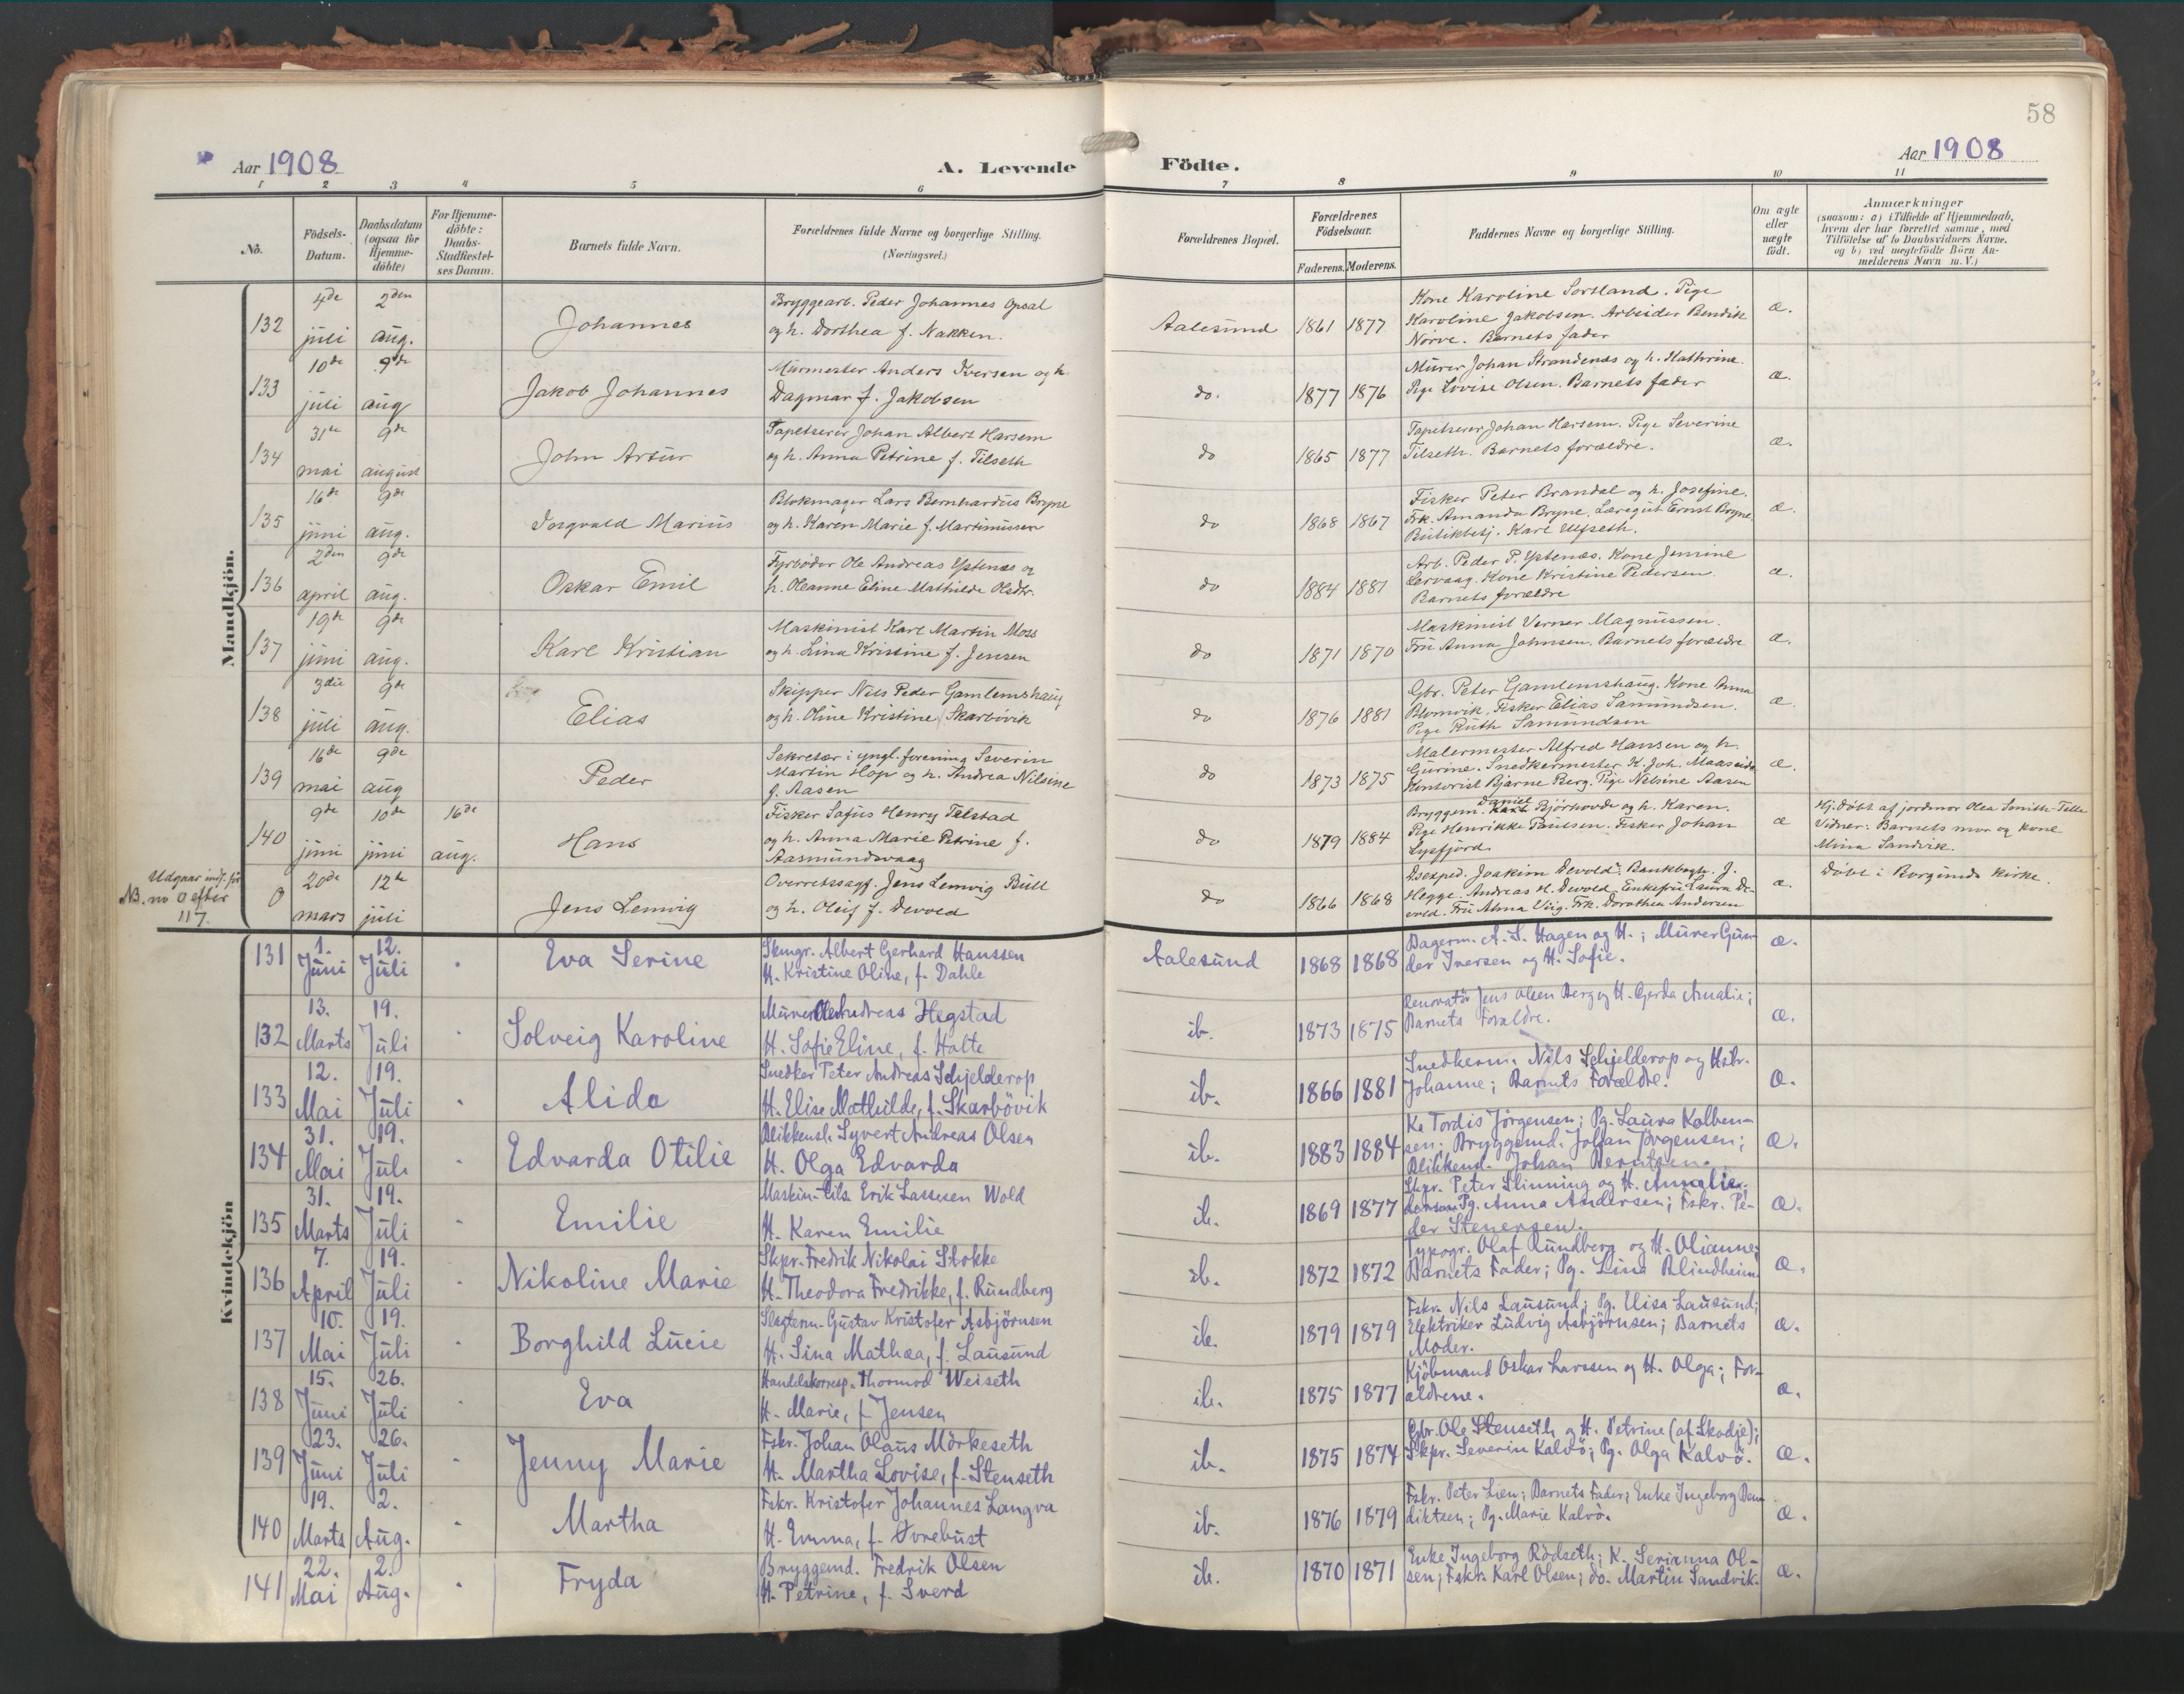 58
Aar 1908
A. Levende Födte.
Aar 1908
1 2 3 4 5 6 7 8 9 10 11
No.
Födsels-Datum.
Daabsdatum (ogsaa for Hjemme-döbte)
For Hjemme-döbte: Daabs-Stadfæstel-ses Datum.
Barnets fulde Navn.
Forældrenes fulde Navne og borgerlige Stilling. (Næringsvei.)
Forældrenes Bopæl.
Forældrenes Födselsaar.
Faderens. Moderens.
Faddernes Navne og borgerlige Stilling.
Om ægte eller uægte födt.
Anmærkninger
(saasom: a) i Tilfælde af Hjemmedaab,
hvem der har forrettet samme, med
Tilföielse af to Daabsvidners Navne.
og b) ved uægtefödte Börn An-
melderens Navn m. V.)
Mandkjön.
132 4de juli 2den aug. Johannes
Bryggearb. Peder Johannes Opsal
og h. Dorthea f. Nakken.
Aalesund 1861 1877
Kone Karoline Sortland. Pige
Karoline Jakobsen. Arbeider Bendik
Nörve. Barnets fader
æ.
133 10de juli 9de aug Jakob Johannes
Murmester Anders Iversen og h.
Dagmar f. Jakobsen
do. 1877 1876
Murer Johan Strandenæs og h. Kathrine.
Pige Lovise Olsen. Barnets fader
æ.
134 31te mai 9de august John Artur
Tapetserer Johan Albert Harsem
og h. Anna Petrine f. Tilseth
do 1865 1877
Tapetserer Johan Harsem. Pige Severine
Tilseth. Barnets forældre.
æ.
135 16de juni 9de aug. Ingvald Marius
Blokmager Lars Bernhardus Bryne
og h. Karen Marie f. Martinussen
do 1868 1867
Fisker Peter Brandal og h. Josefine.
Frk. Amanda Bryne. Læregut Ernst Bryne.
Butikbetj. Karl Ulfseth.
æ.
136 2den april 9de aug. Oskar Emil
Fyrböder Ole Andreas Ystenæs og
h. Oleanne Eline Mathilde Olsdtr.
do 1884 1881
Arb. Peder P. Ystenæs. Kone Jensine
Lervaag. Kone Kristine Pedersen.
Barnets forældre
æ.
137 19de juni 9de aug. Karl Kristian
Maskinist Karl Martin Moss
og h. Lina Kristine f. Jensen
do 1871 1870
Maskinist Verner Magnussen.
Fru Anna Johnsen. Barnets forældre
æ.
138 3die juli 9de aug. Elias
Skipper Nils Peder Gamlemshaug
og h. Oline Kristine f Skarbövik
do 1876 1881
Gbr. Peter Gamlemshaug. Kone Anna
Blomvik. Fisker Elias Samundsen.
Pige Ruth Samundsen
æ.
139 16de mai 9de aug Peder
Sekretær i yngl. forening Severin
Martin Hop og h. Andrea Nilsine
f. Aasen
do 1873 1875
Malermester Alfred Hansen og h.
Gurine. Snedkermester K. Joh. Maaseide
Kontorist Bjarne Berg. Pige Nilsine Aasen
æ.
140 9de juni 10de juni 16de aug. Hans
Fisker Sofus Henry Telstad
og h. Anna Marie Petrine f.
Aasmundsvaag
do 1879 1884
Bryggem. Daniel Björhovde og h. Karen.
Pige Henrikke Paulsen. Fisker Johan
Lysfjord.
æ
Hj. döbt af jordmor Olea Smith-Telle
Vidner: Barnets mor og kone
Mina Sandvik.
Udgaar indf. för
NB. no 0 efter
117.
0 20de mars 12te juli Jens Lemvig
Overretssagf. Jens Lemvig Bull
og h. Oleif f. Devold
do 1866 1868
Dsexped. Joakim Devold. Bankbogh. J.
Hegge. Andreas H. Devold. Enkefru Laura De-
vold. Fru Alma Viig. Frk. Dorothea Andersen
æ.
Döbt i Borgunds kirke.
Kvindekjön
131 1. Juni 12. Juli Eva Serine
Skmgr. Albert Gerhard Hanssen
H. Kristine Oline, f. Dahle
Aalesund 1868 1868
Dagerm. A. S. Hagen og H.; Murer Gun-
der Iversen og H. Sofie.
æ.
132 13. Marts 19. Juli Solveig Karoline
Murer Ole Andreas Hegstad
H. Sofie Eline, f. Holte
ib. 1873 1875
Renovatör Jens Olsen Berg og H. Gerda Amalie;
Barnets Forældre.
æ.
133 12. Mai 19. Juli Alida
Snedker Peter Andreas Schjelderop
H. Elise Mathilde, f. Skarbövik
ib. 1866 1881
Snedkerm. Nils Schjelderop og Hstr.
Johanne; Barnets Forældre.
æ.
134 31. Mai 19. Juli Edvarda Otilie
Blikkensl. Syvert Andreas Olsen
H. Olga Edvarda
ib. 1883 1884
K. Tordis Jörgensen; Pg. Laura Kolben-
sen; Bryggemd. Johan Jörgensen;
Blikkensl. Johan Berntsen.
æ.
135 31. Marts 19. Juli Emilie
Maskin-tils. Erik Lassesen Wold
H. Karen Emilie
ib. 1869 1877
Skpr. Peter Slinning og H. Amalie;
Pg. Anna Andersen; Fskr. Pe-
der Stenersen.
æ.
136 7. April 19. Juli Nikoline Marie
Skpr. Fredrik Nikolai Stokke
H. Theodora Fredrikke, f. Rundberg
ib. 1872 1872
Typogr. Olaf Rundberg og H. Olianne;
Barnets Fader; Pg. Lina Blindheim
æ.
137 10. Mai 19. Juli Borghild Lucie
Slagterm. Gustav Kristofer Asbjörnsen
H. Sina Mathea, f. Lausund
ib. 1879 1879
Fskr. Nils Lausund; Pg. Elisa Lausund;
Elektriker Ludvig Asbjörnsen; Barnets
Moder.
æ.
138 15. Juni 26. Juli Eva
Handelskorresp. Thormod Weiseth
H. Marie, f. Jensen
ib. 1875 1877
Kjöbmand Oskar Larssen og H. Olga; For-
ældrene.
æ.
139 23. Juni 26. Juli Jenny Marie
Fskr. Johan Olaus Mörkeseth
H. Martha Lovise, f. Stenseth
ib. 1875 1874
Gbr. Ole Stenseth og H. Petrine (af Skodje);
Skpr. Severin Kalvö; Pg. Olga Kalvö.
æ.
140 19. Marts 2. Aug. Martha
Fskr. Kristofer Johannes Langva
H. Emma, f. Övrebust
ib. 1876 1879
Fskr. Peter Lien; Barnets Fader; Enke Ingeborg Ben-
diktsen; Pg. Marie Kalvö.
æ.
141 22. Mai 2. Aug. Fryda
Bryggemd. Fredrik Olsen
H. Petrine, f. Sverd
ib. 1870 1871
Enke Ingeborg Rödseth; K. Serianna Ol-
sen; Fskr. Karl Olsen; do. Martin Sandvik.
æ.